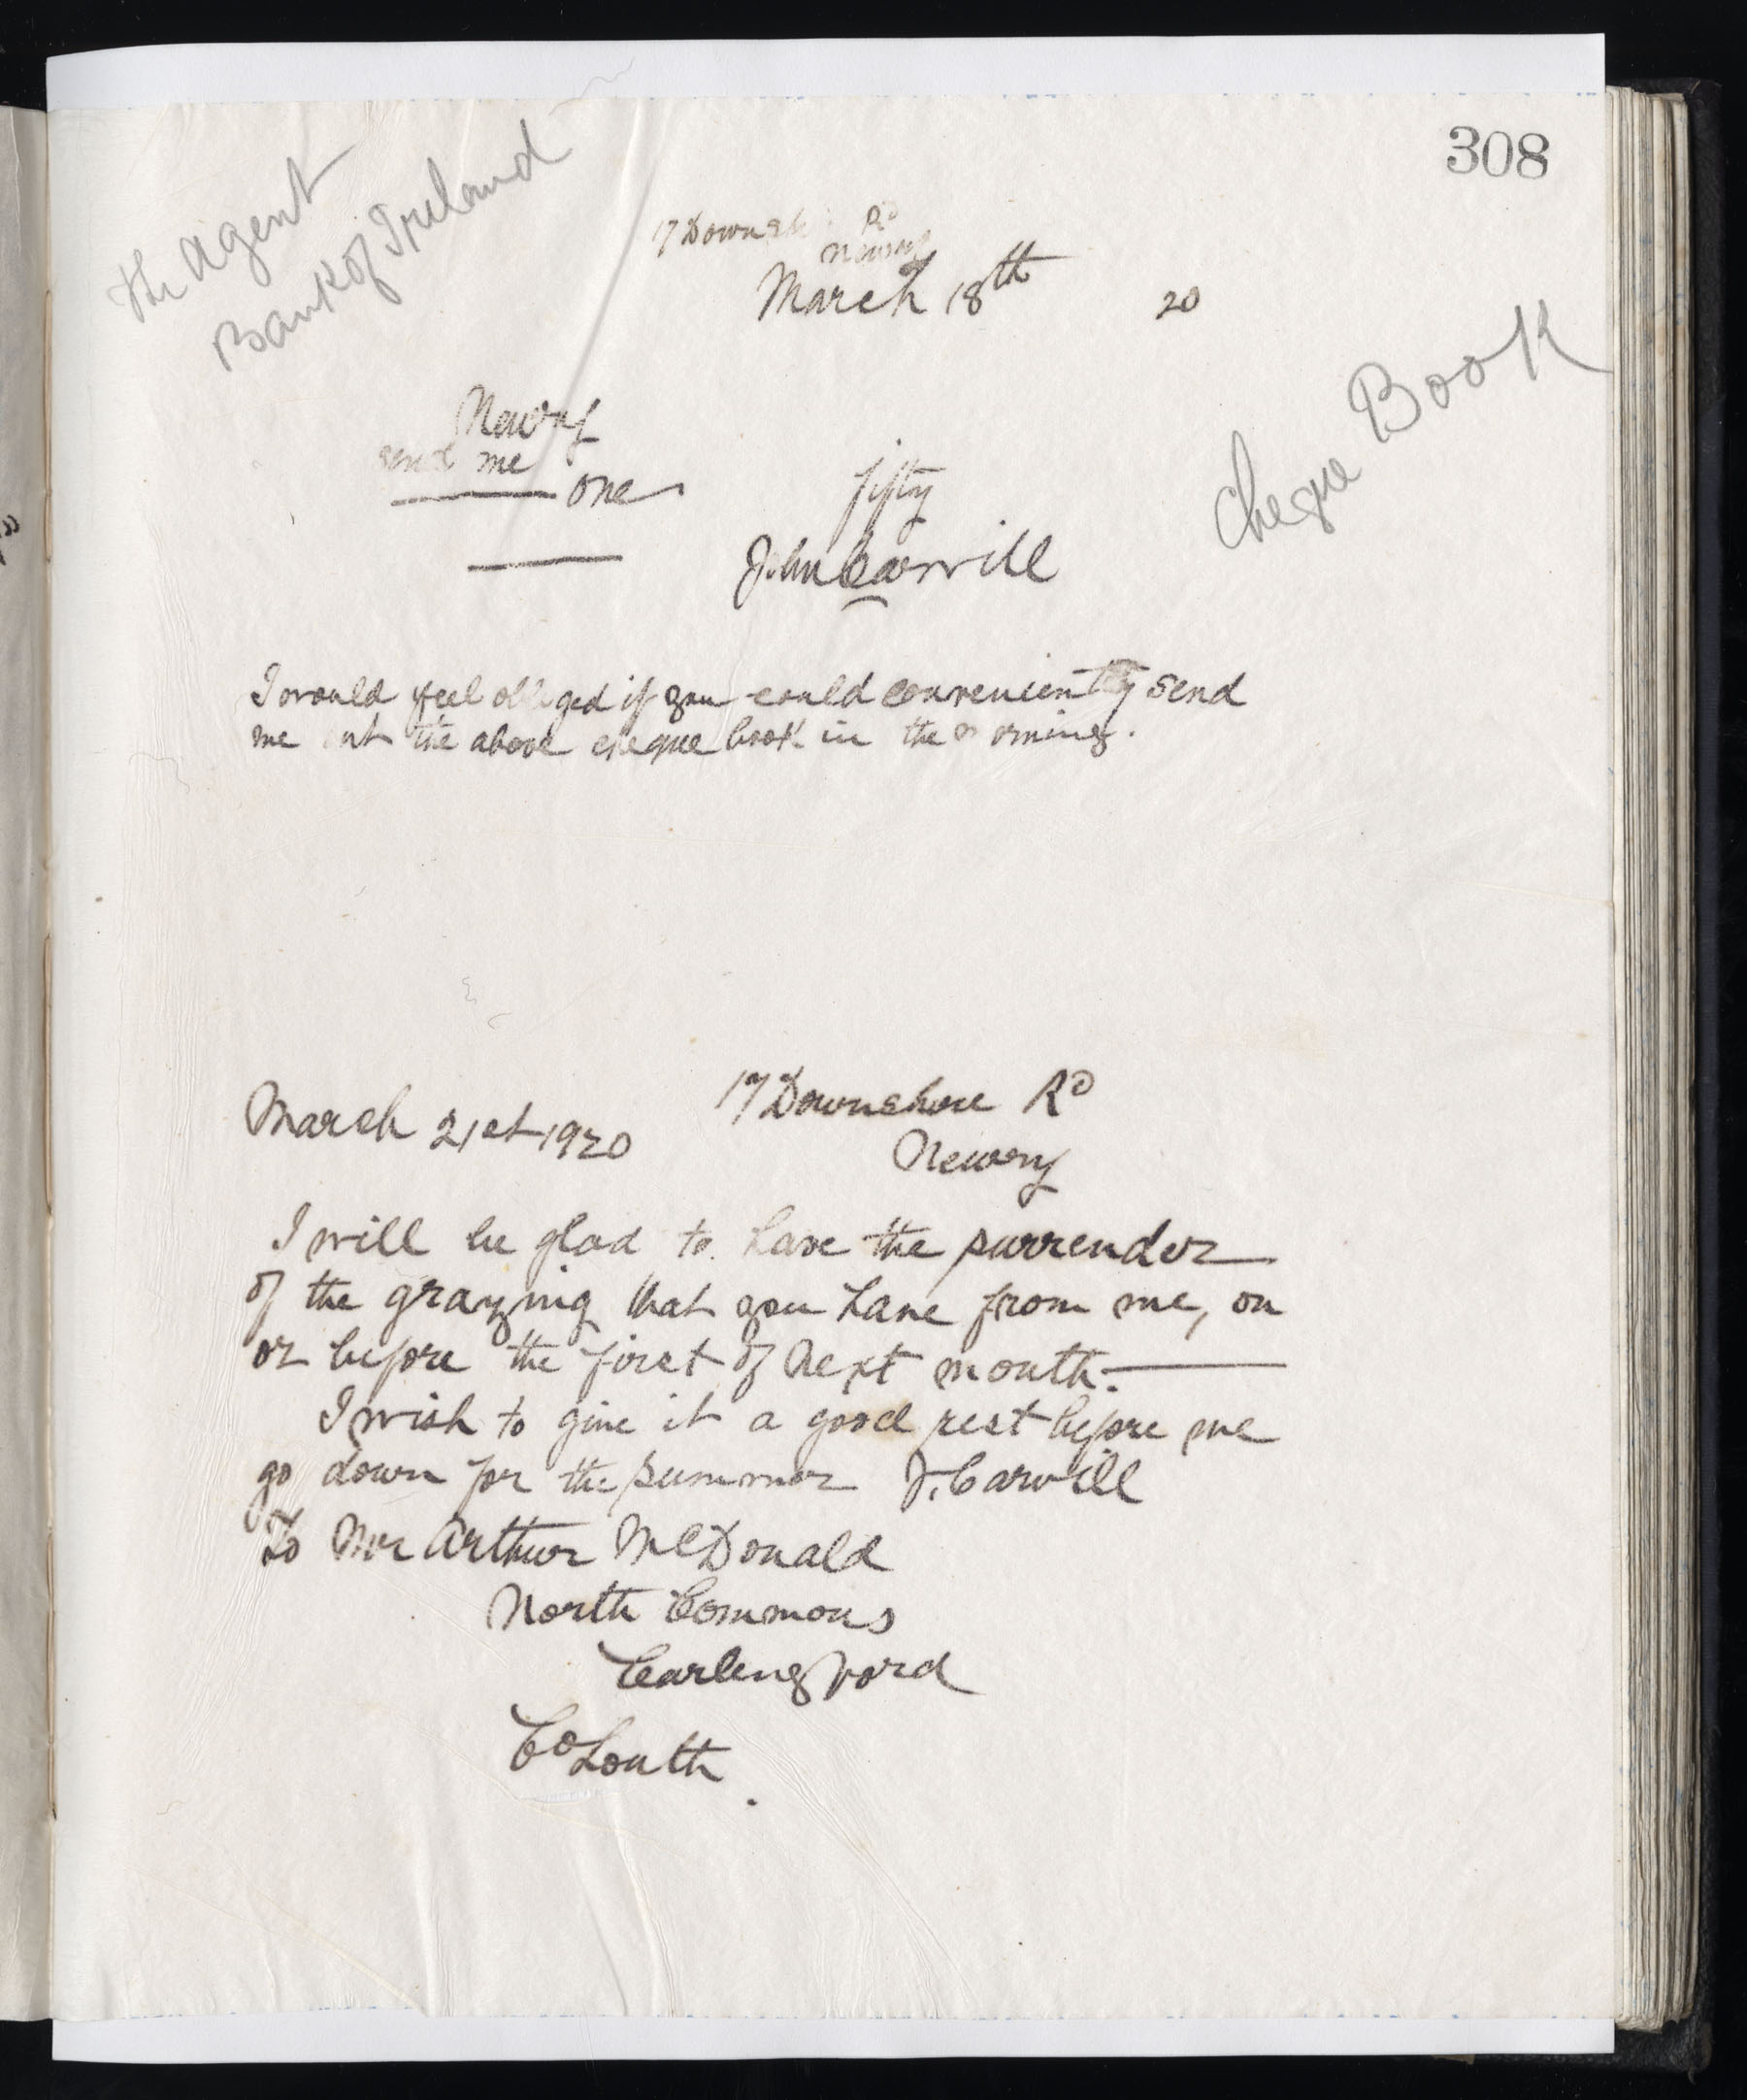 308
The Agent
Bank of Ireland
17 Downsh Rd
Newry
March 18th 20
Cheque Book
Newry
send me
one fifty
John Carvill
I would feel obliged if you could conveniently send
me out the above cheque book in the morning.
March 21st 1920
17 Downshire Rd
Newry
I will be glad to have the surrender
of the grazing that you have from me, on
or before the first of next month.
I wish to give it a good rest before we
go down for the summer J. Carvill
To Mr Arthur McDonald
North Commons
Carlingford
Co Louth.